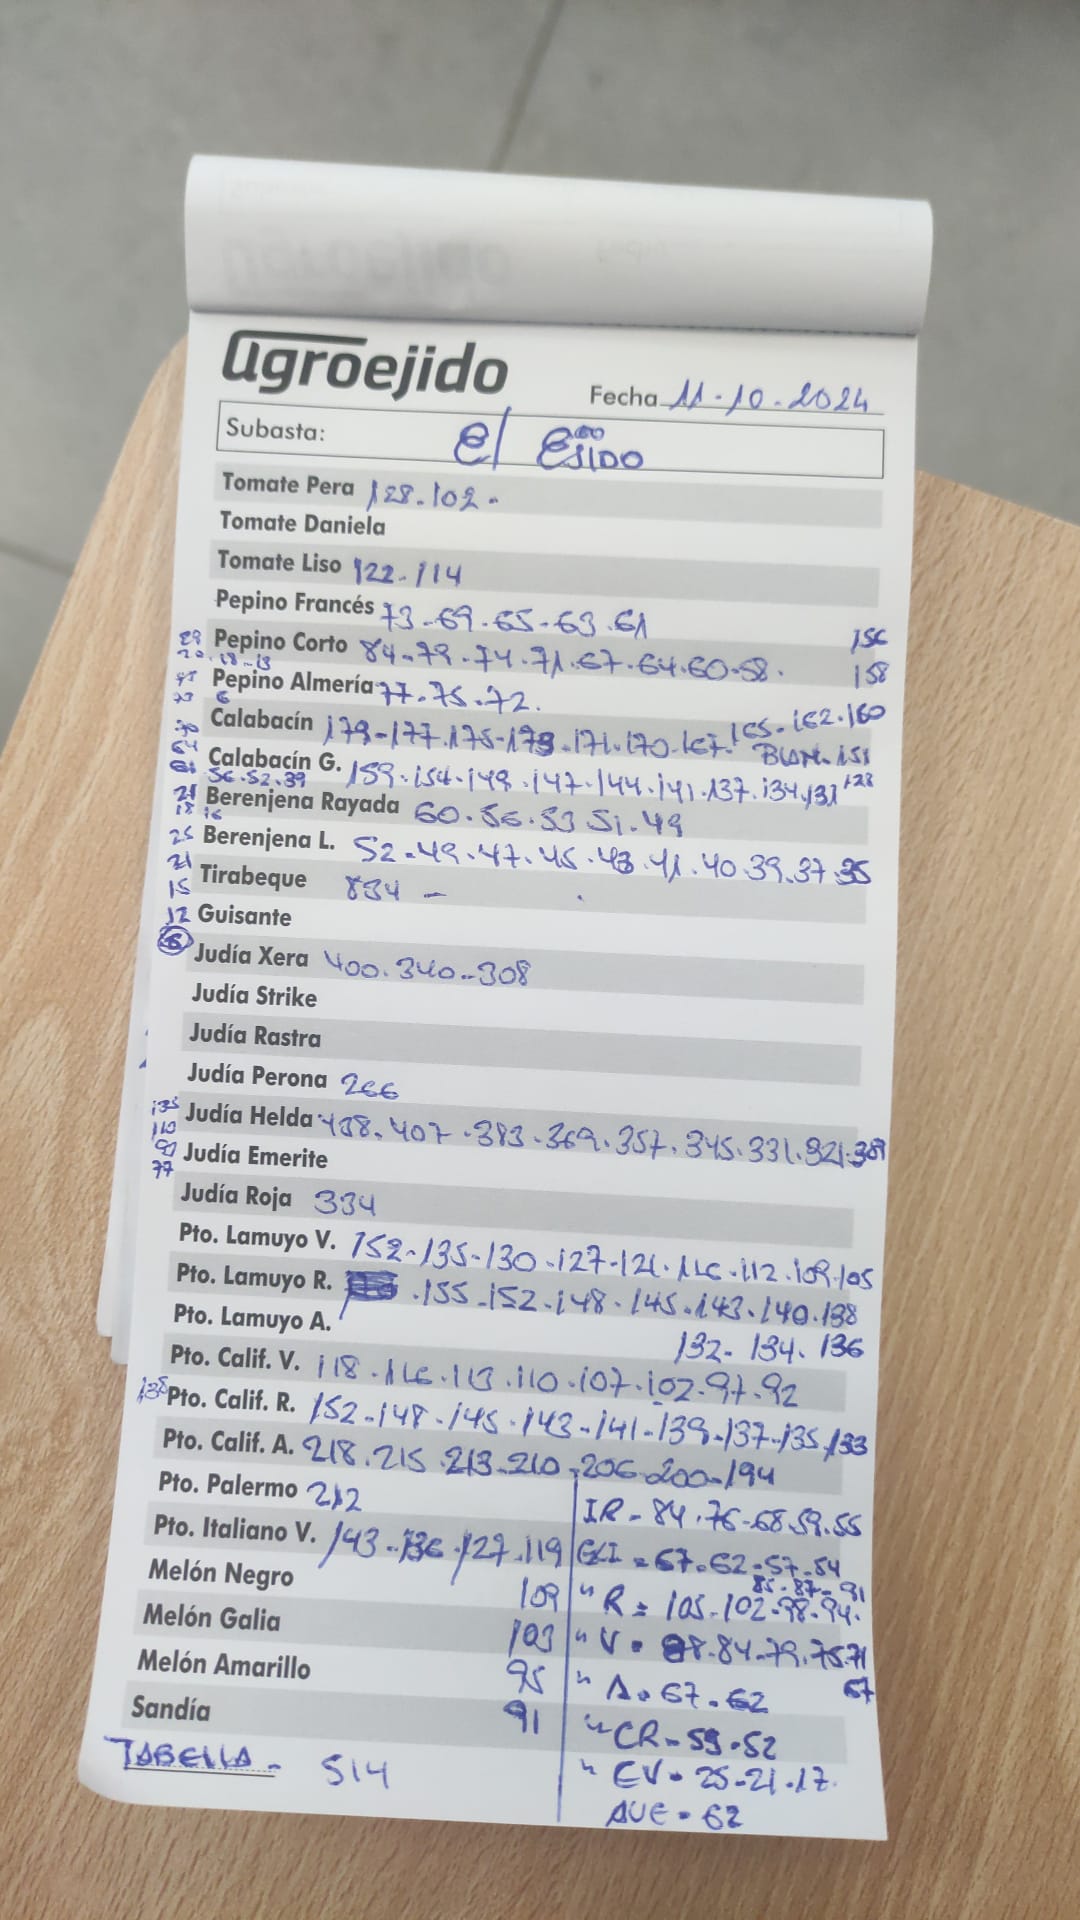 agroejido
Fecha 11.10.2024
Subasta: El Ejido
Tomate Pera 128-102-
Tomate Daniela
Tomate Liso 122-114
Pepino Francés 73-69-65-63.61
156
Pepino Corto 84-79-74.71.67.64.60-58.
158
20.18-13
Pepino Almería 77-75-72.
165-162.160
Calabacín 179-177.175-173.171.170-167.
BLAN-151
Calabacín G. 159-154-149.147-144.141.137.134.131 128
56.52.39
Berenjena Rayada 60.56.53 51.49
21
18 16
Berenjena L. 52-49-47-45.43.41.40.39.37.35
25
21
Tirabeque 834 -
15
Guisante
12
Judía Xera 400.340-308
Judía Strike
Judía Rastra
Judía Perona 266
135
Judía Helda 438.407.383.369.357.345.331.321.309
110
Judía Emerite
77
Judía Roja 334
Pto. Lamuyo V. 152-135-130-127-121.116.112.109.105
Pto. Lamuyo R. .155-152-148.145.143.140.138
132-134.136
Pto. Lamuyo A.
Pto. Calif. V. 118.116.113.110.107.102-97.92
135
Pto. Calif. R. 152-148-145.143-141-139-137-135.133
Pto. Calif. A. 218.215.213-210.206.200-194
Pto. Palermo 212
Pto. Italiano V. 143-136-127.119
Melón Negro 109
Melón Galia 103
Melón Amarillo 95
Sandía 91
TABELLA - 514
IR - 84.76-68.59.55
GLI = 67-62-57-54
85-87-91
" R = 105-102-98-94.
" V = 88.84-79.75.71
67
" A = 67-62
" CR - 59-52
" EV - 25-21-17.
AVE - 62